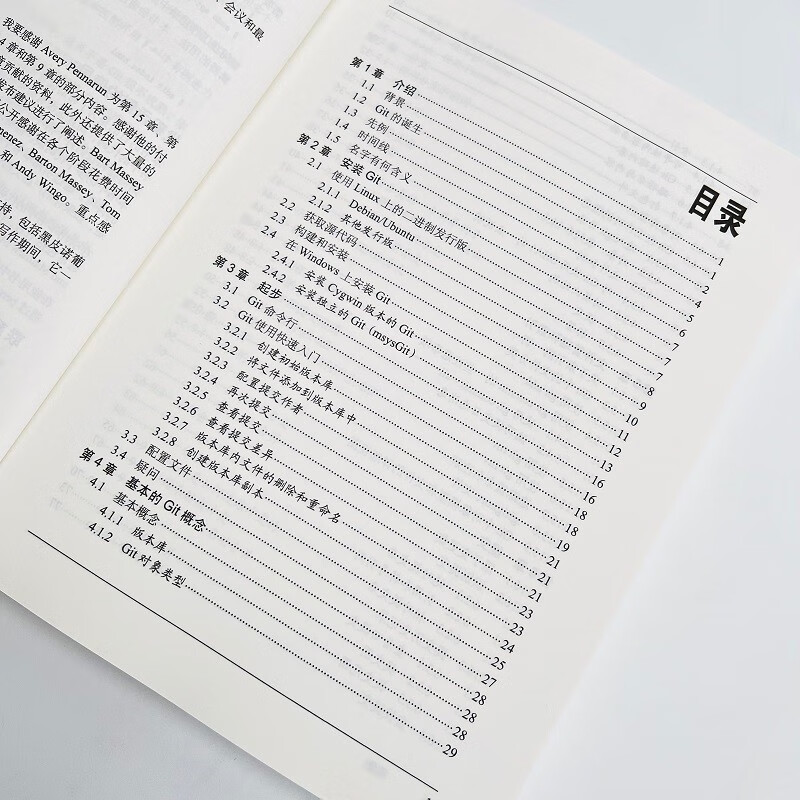 、会议和最
我要感谢 Avery Pennarun 为第 15 章、第
4 章和第 9 章的部分内容。感谢他的付
贡献的资料，此外还提供了大量的
发布建议进行了阐述。Bart Massey
公开感谢在各个阶段花费时间
menez、Barton Massey、Tom
和 Andy Wingo。重点感
持，包括黑皮诺葡
写作期间，它一
目录
第 1 章 介绍 1
1.1 背景 1
1.2 Git 的诞生 2
1.3 先例 4
1.4 时间线 5
1.5 名字有何含义 6
第 2 章 安装 Git 7
2.1 使用 Linux 上的二进制发行版 7
2.1.1 Debian/Ubuntu 7
2.1.2 其他发行版 8
2.2 获取源代码 9
2.3 构建和安装 10
2.4 在 Windows 上安装 Git 11
2.4.1 安装 Cygwin 版本的 Git 12
2.4.2 安装独立的 Git（msysGit） 13
第 3 章 起步 16
3.1 Git 命令行 16
3.2 Git 使用快速入门 18
3.2.1 创建初始版本库 18
3.2.2 将文件添加到版本库中 19
3.2.3 配置提交作者 21
3.2.4 再次提交 21
3.2.5 查看提交 21
3.2.6 查看提交差异 23
3.2.7 版本库内文件的删除和重命名 23
3.2.8 创建版本库副本 24
3.3 配置文件 25
3.4 疑问 27
第 4 章 基本的 Git 概念 28
4.1 基本概念 28
4.1.1 版本库 28
4.1.2 Git 对象类型 29